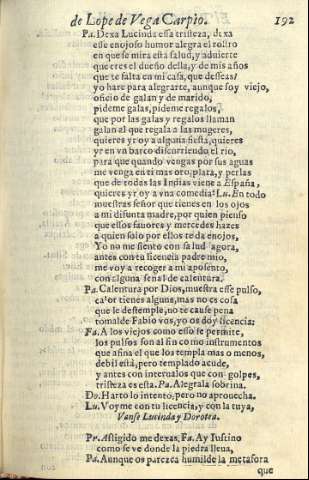 de Lope de Vega Carpio. 192
Pa. Dexa Lucinda essa tristeza, dexa
esse enojoso humor alegra el rostro
en que se mira esta salud, y aduierte
que eres el dueño della, y de mis años
que te falta en mi casa, que desseas?
yo hare para alegrarte, aunque soy viejo,
oficio de galan y de marido,
pideme galas, pideme regalos,
que por las galas y regalos llaman
galan al que regala a las mugeres,
quieres yr oy a alguna fiesta, quieres
yr en vn barco discorriendo el rio,
para que quando vengas por sus aguas
me venga en ti mas oro, plata, y perlas
que de todas las Indias viene a España,
quieres yr oy a vna comedia? Lu. En todo
muestras señor que tienes en los ojos
a mi difunta madre, por quien pienso
que essos fauores y mercedes hazes
a quien solo por ellos te da enojos,
Yo no me siento con salud agora,
antes con tu licencia padre mio,
me voy a recoger a mi aposento,
con alguna señal de calentura.
Pa. Calentura por Dios, muestra esse pulso,
calor tienes alguna, mas no es cosa
que le destemple, no te cause pena
tomalde Fabio vos, yo os doy licencia:
Fa. A los viejos como esso se permite,
los pulsos son al fin como instrumentos
que afina el que los templa mas o menos,
debil està, pero templado acude,
y antes con interualos que con golpes,
tristeza es esta. Pa. Alegrala sobrina.
Do. Harto lo intento, pero no aprouecha.
Lu. Voyme con tu licencia, y con la tuya,
Vanse Lucinda y Dorotea.
Pr. Afligido me dexas. Fa. Ay Iustino
como se ve donde la piedra llueua,
Pa. Aunque os parezca humilde la metafora
que